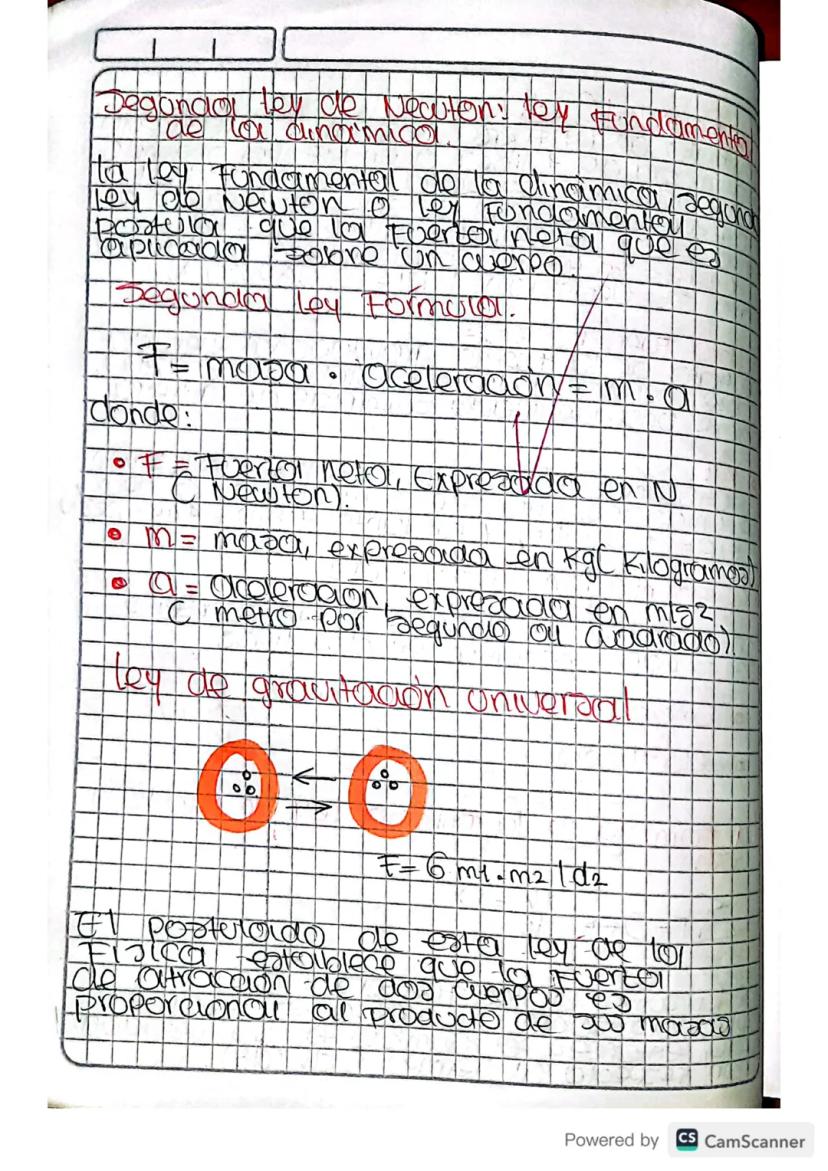 Segunda ley de Newton: ley fundamental
de la dinámica.
La ley fundamental de la dinámica, segunda
ley de Newton o ley fundamental
postula que la fuerza neta que es
aplicada sobre un cuerpo.
Segunda ley Fórmula.
F = masa · aceleración = m · a
donde:
• F = Fuerza neta, Expresada en N
( Newton).
• m = masa, expresada en kg( kilogramos)
• a = aceleración, expresada en m/s2
( metro por segundo al cuadrado).
ley de gravitación universal
F= 6 m1 . m2 / d2
El postulado de esta ley de la
Física establece que la fuerza
de atracción de dos cuerpos es
proporcional al producto de sus masas
Powered by CS CamScanner